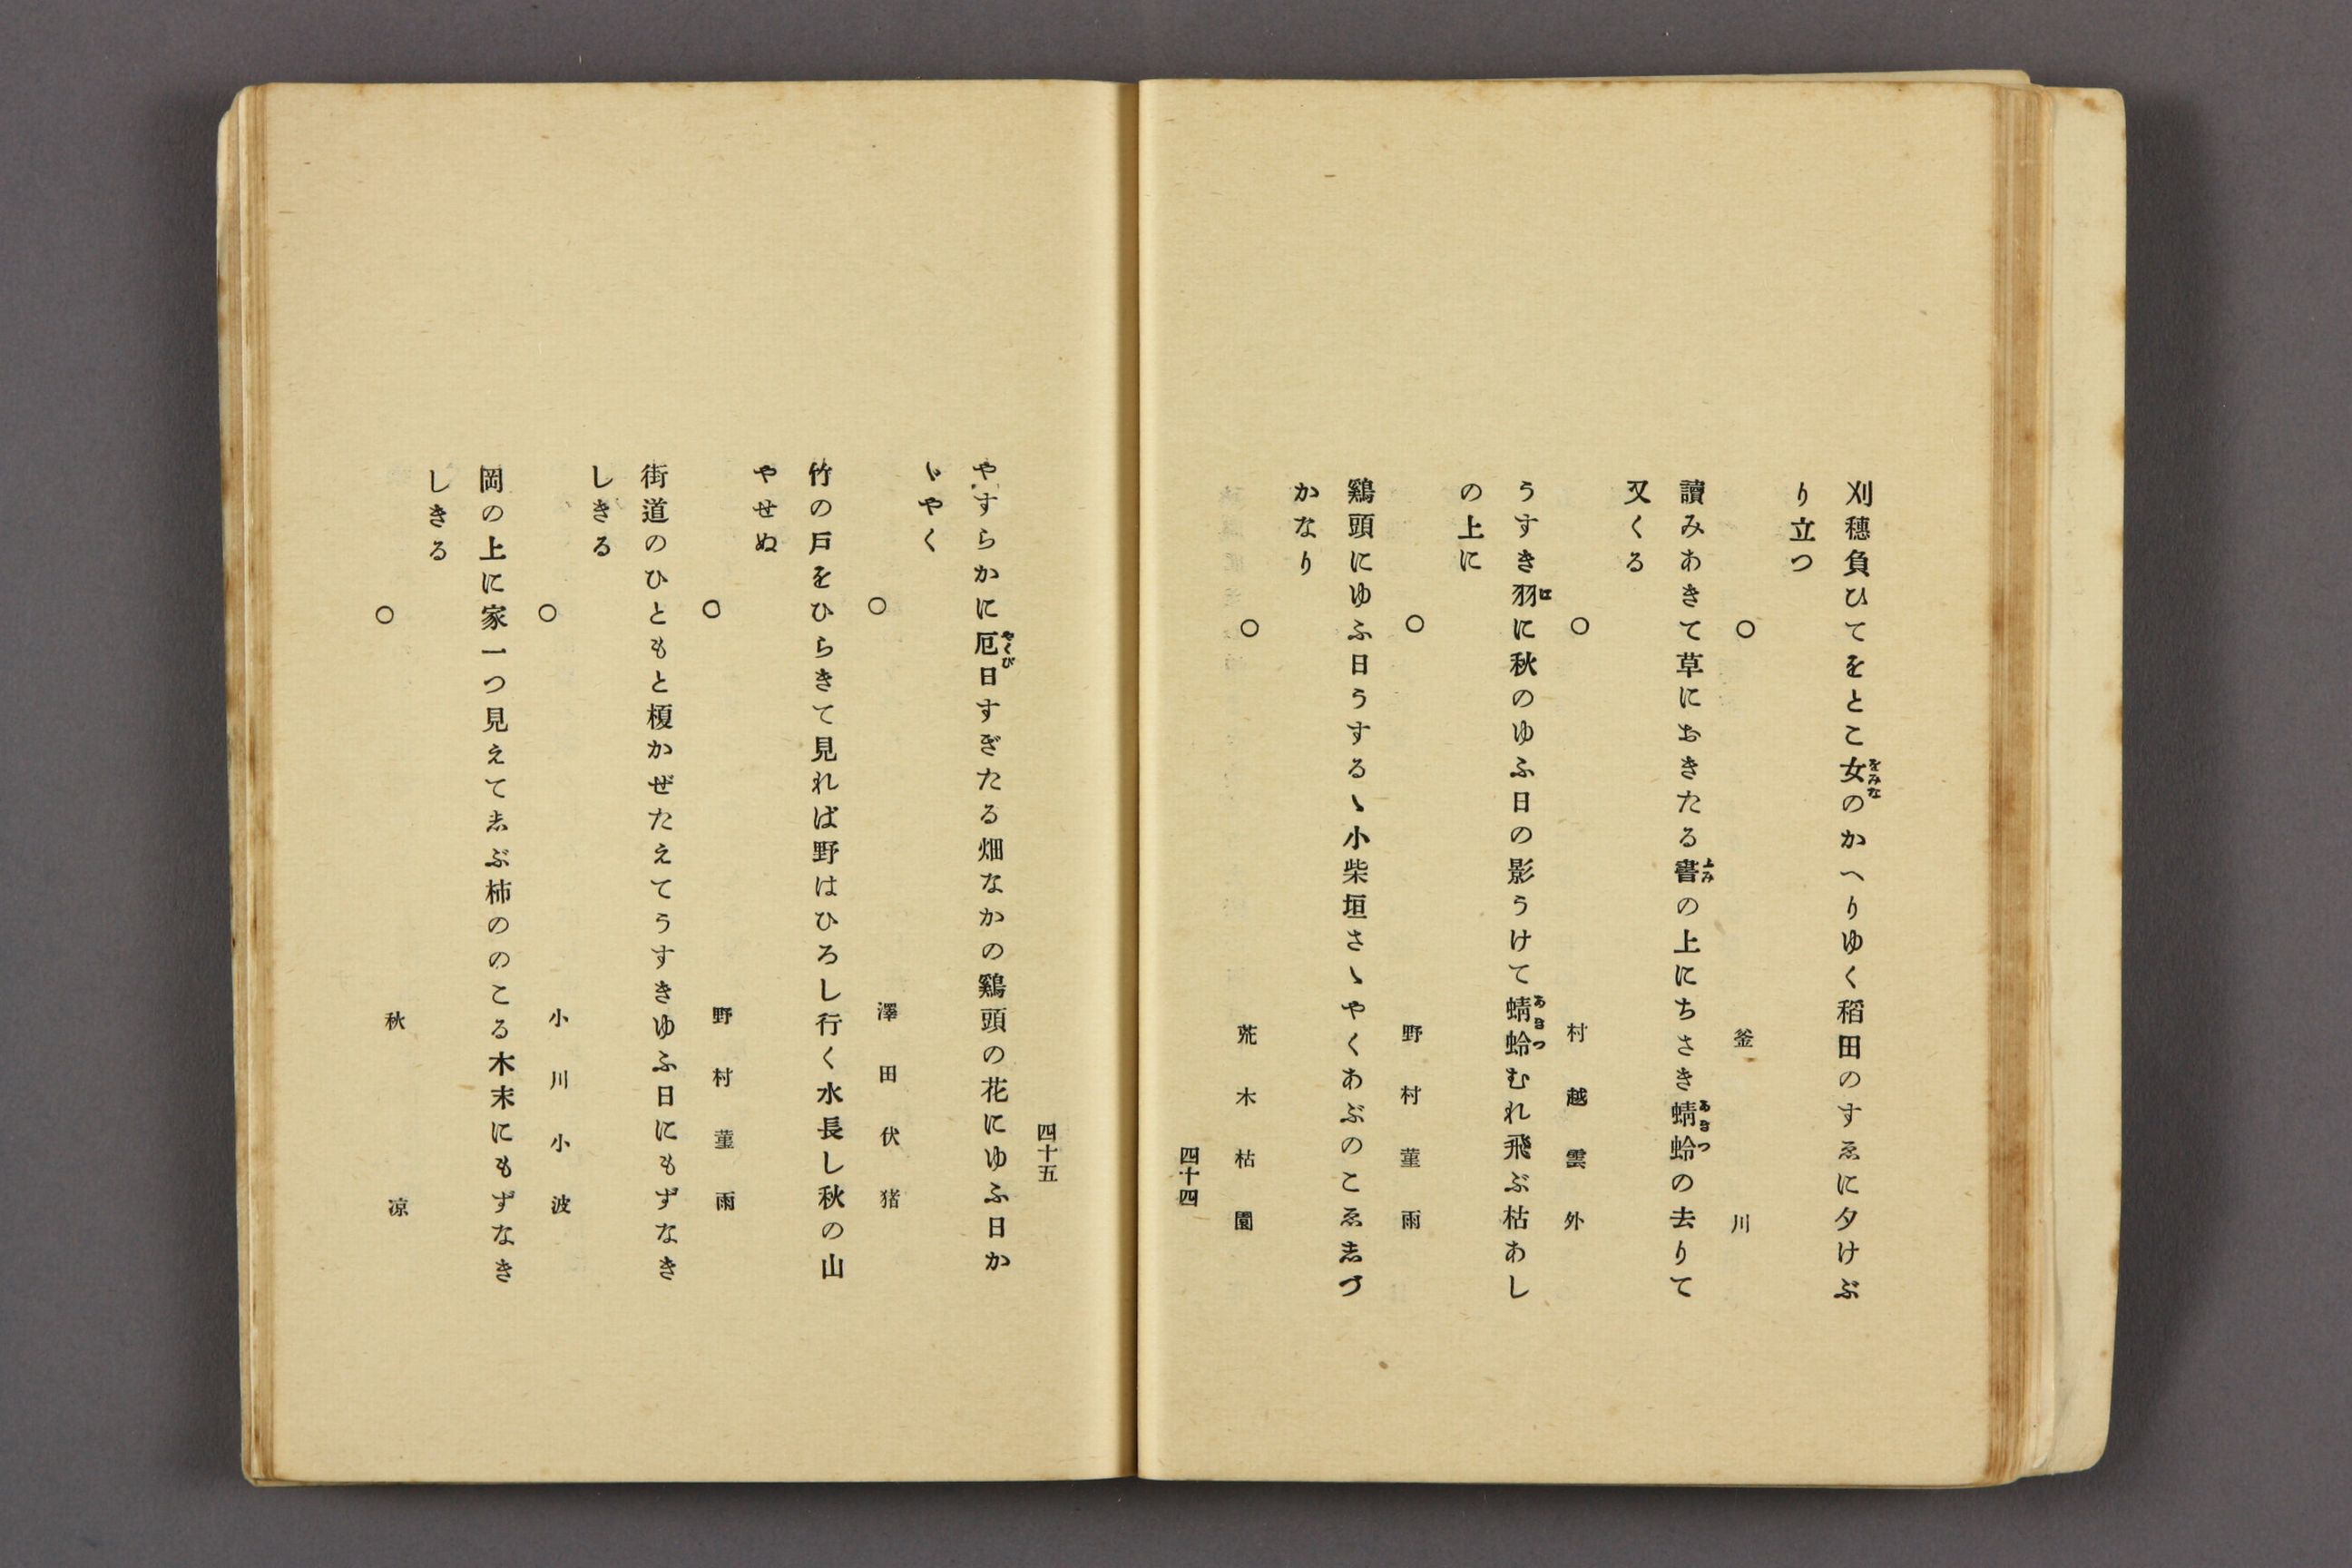 をみな
刈穗負ひてをとこ女のかへりゆく稻田のすゑに夕けぶ
り立つ
○　釜川
ふみ　あきつ
讀みあきて草におきたる書の上にちさき蜻蛉の去りて
又くる
○　村越雲外
は　あきつ
うすき羽に秋のゆふ日の影うけて蜻蛉むれ飛ぶ枯あし
の上に
○　野村菫雨
鷄頭にゆふ日うするゝ小柴垣さゝやくあぶのこゑ志づ
かなり
○　荒木枯園
四十四
四十五
やくび
やすらかに厄日すぎたる畑なかの鷄頭の花にゆふ日か
ゞやく
○　澤田伏猪
竹の戸をひらきて見れば野はひろし行く水長し秋の山
やせぬ
○　野村菫雨
街道のひともと榎かぜたえてうすきゆふ日にもずなき
しきる
○　小川小波
岡の上に家一つ見えて志ぶ柿ののこる木末にもずなき
しきる
○　秋凉